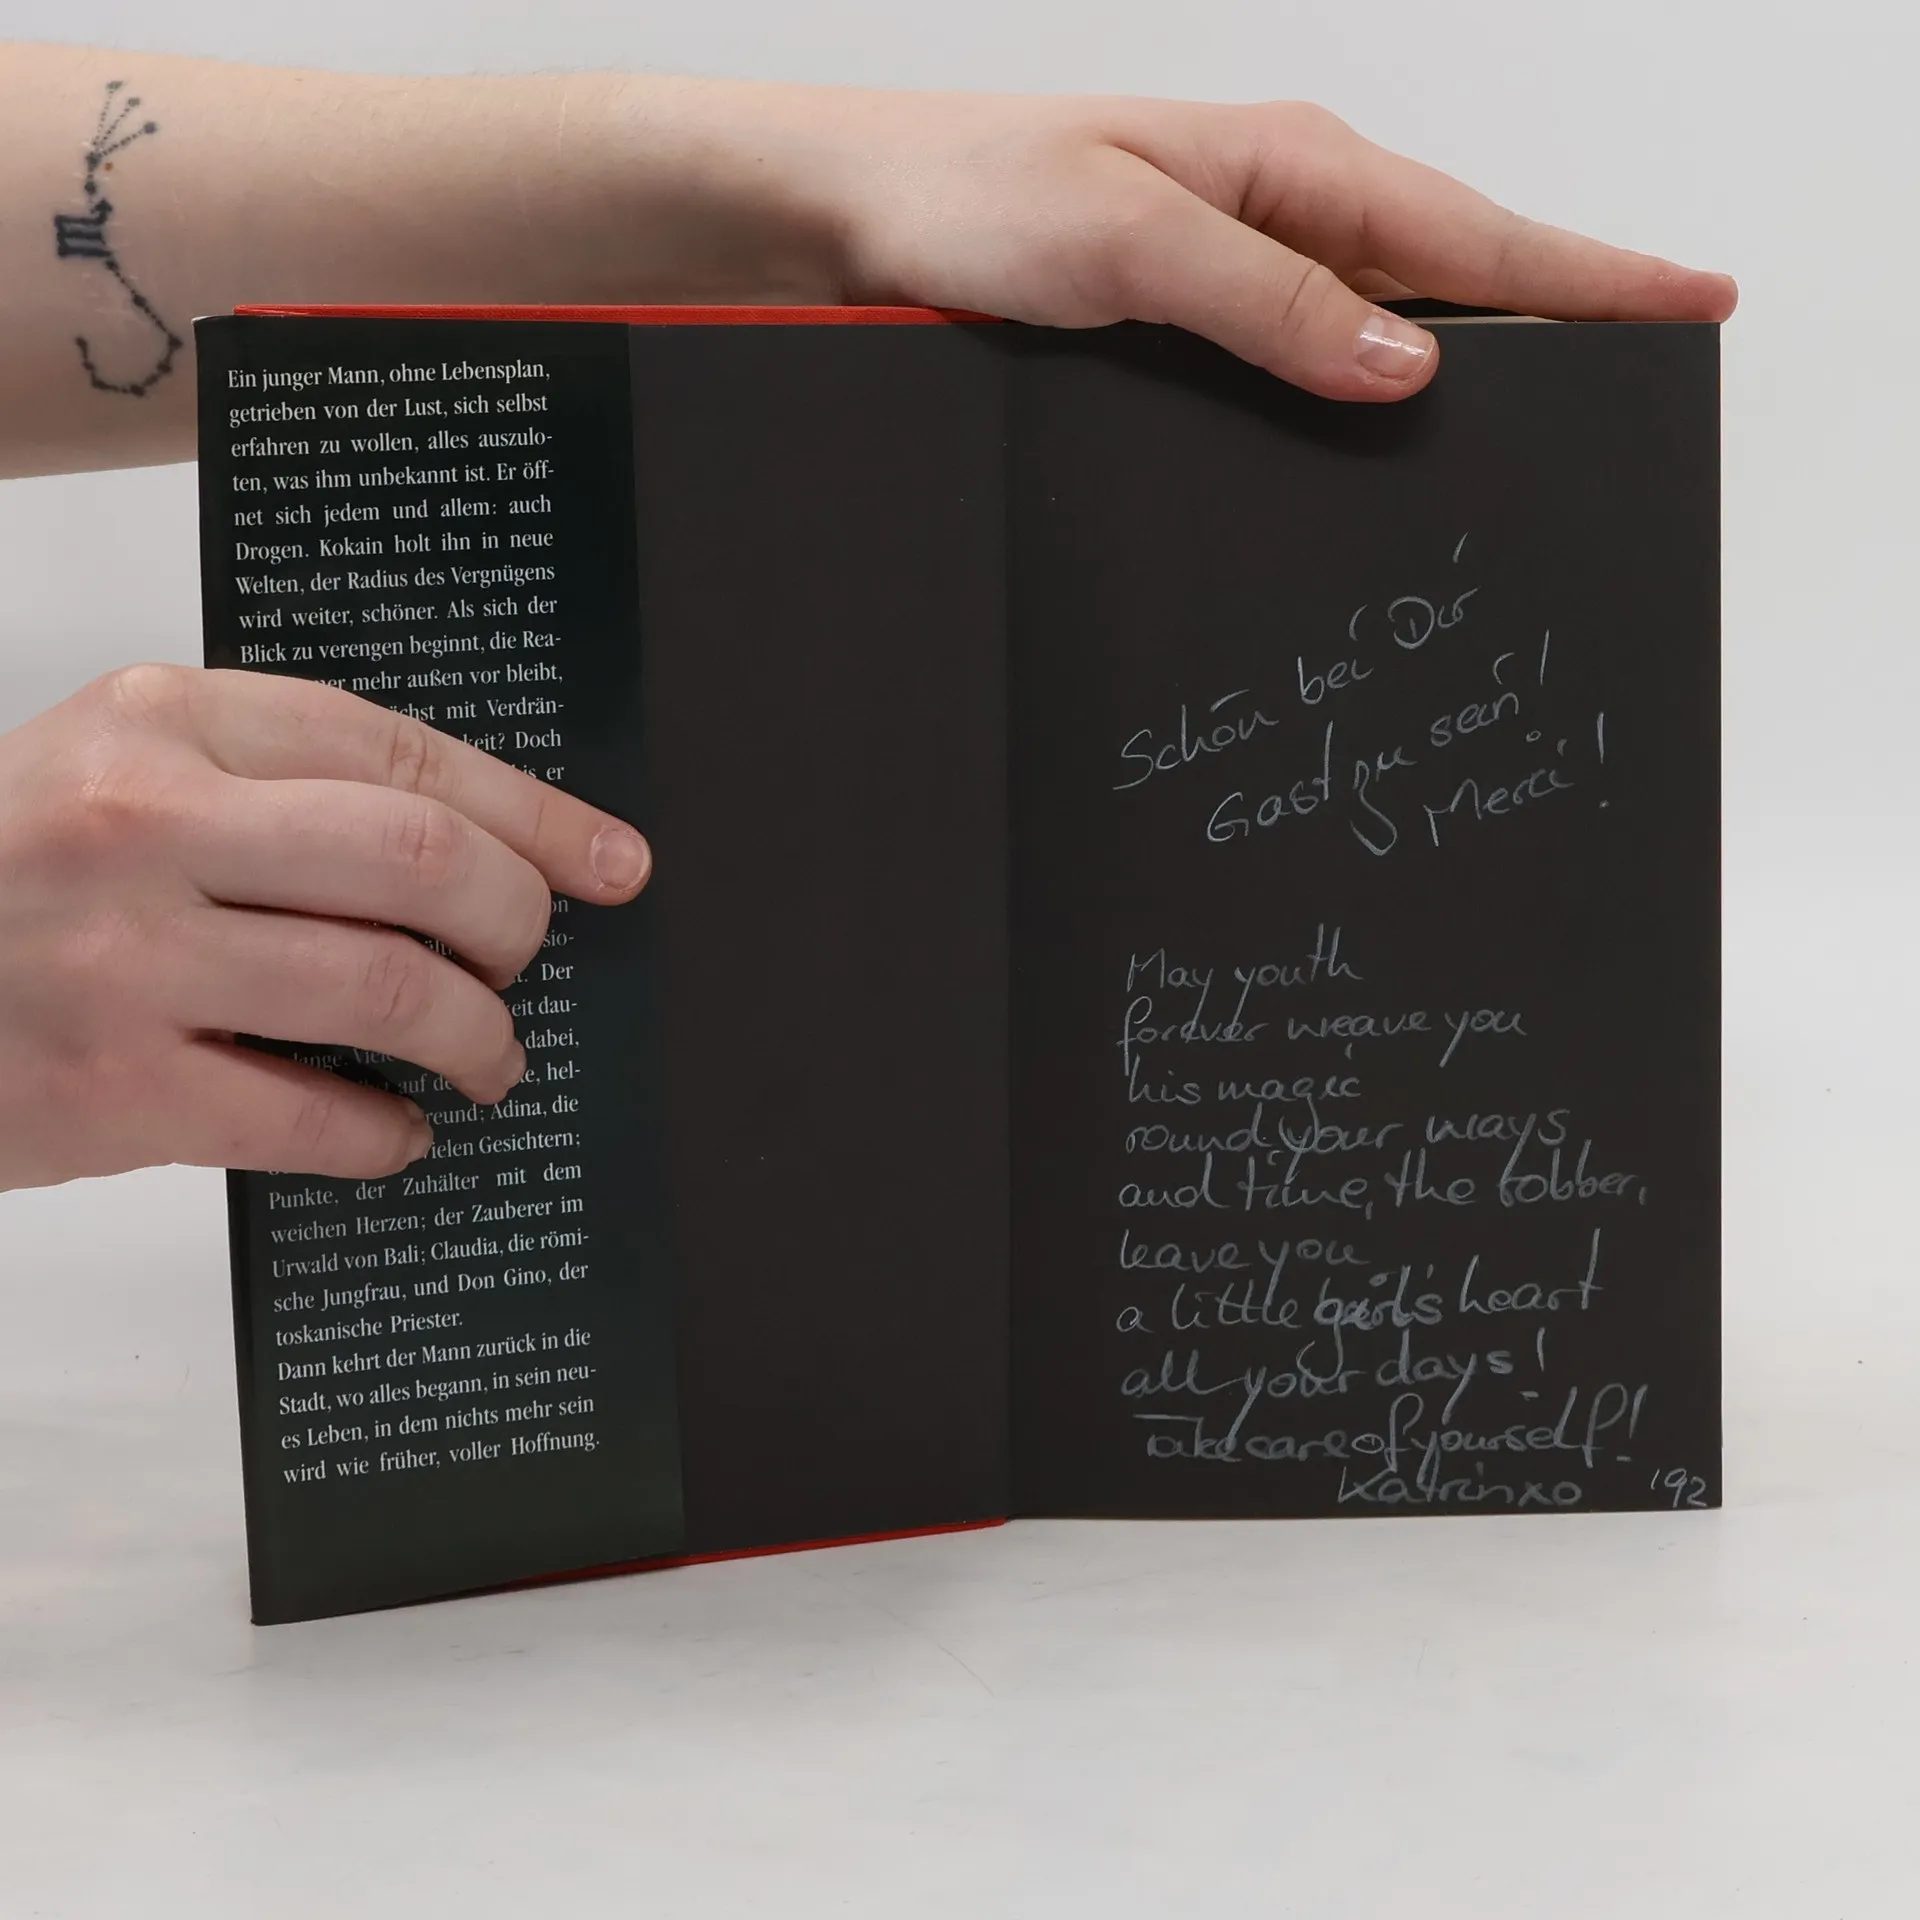 Ein junger Mann, ohne Lebensplan,
getrieben von der Lust, sich selbst
erfahren zu wollen, alles auszulo-
ten, was ihm unbekannt ist. Er öff-
net sich jedem und allem: auch
Drogen. Kokain holt ihn in neue
Welten, der Radius des Vergnügens
wird weiter, schöner. Als sich der
Blick zu verengen beginnt, die Rea-
mehr außen vor bleibt,
mit Verdrän-
Doch
er
Der
dau-
dabei,
auf hel-
Adina, die
vielen Gesichtern;
Punkte, der Zuhälter mit dem
weichen Herzen; der Zauberer im
Urwald von Bali; Claudia, die römi-
sche Jungfrau, und Don Gino, der
toskanische Priester.
Dann kehrt der Mann zurück in die
Stadt, wo alles begann, in sein neu-
es Leben, in dem nichts mehr sein
wird wie früher, voller Hoffnung.
Schön bei Dir
Gast zu sein!
Merci!
May youth
forever weave you
his magic
round your ways
and time, the robber,
leave you
a little girl's heart
all your days!
Take care of yourself!
Katrin xo '92